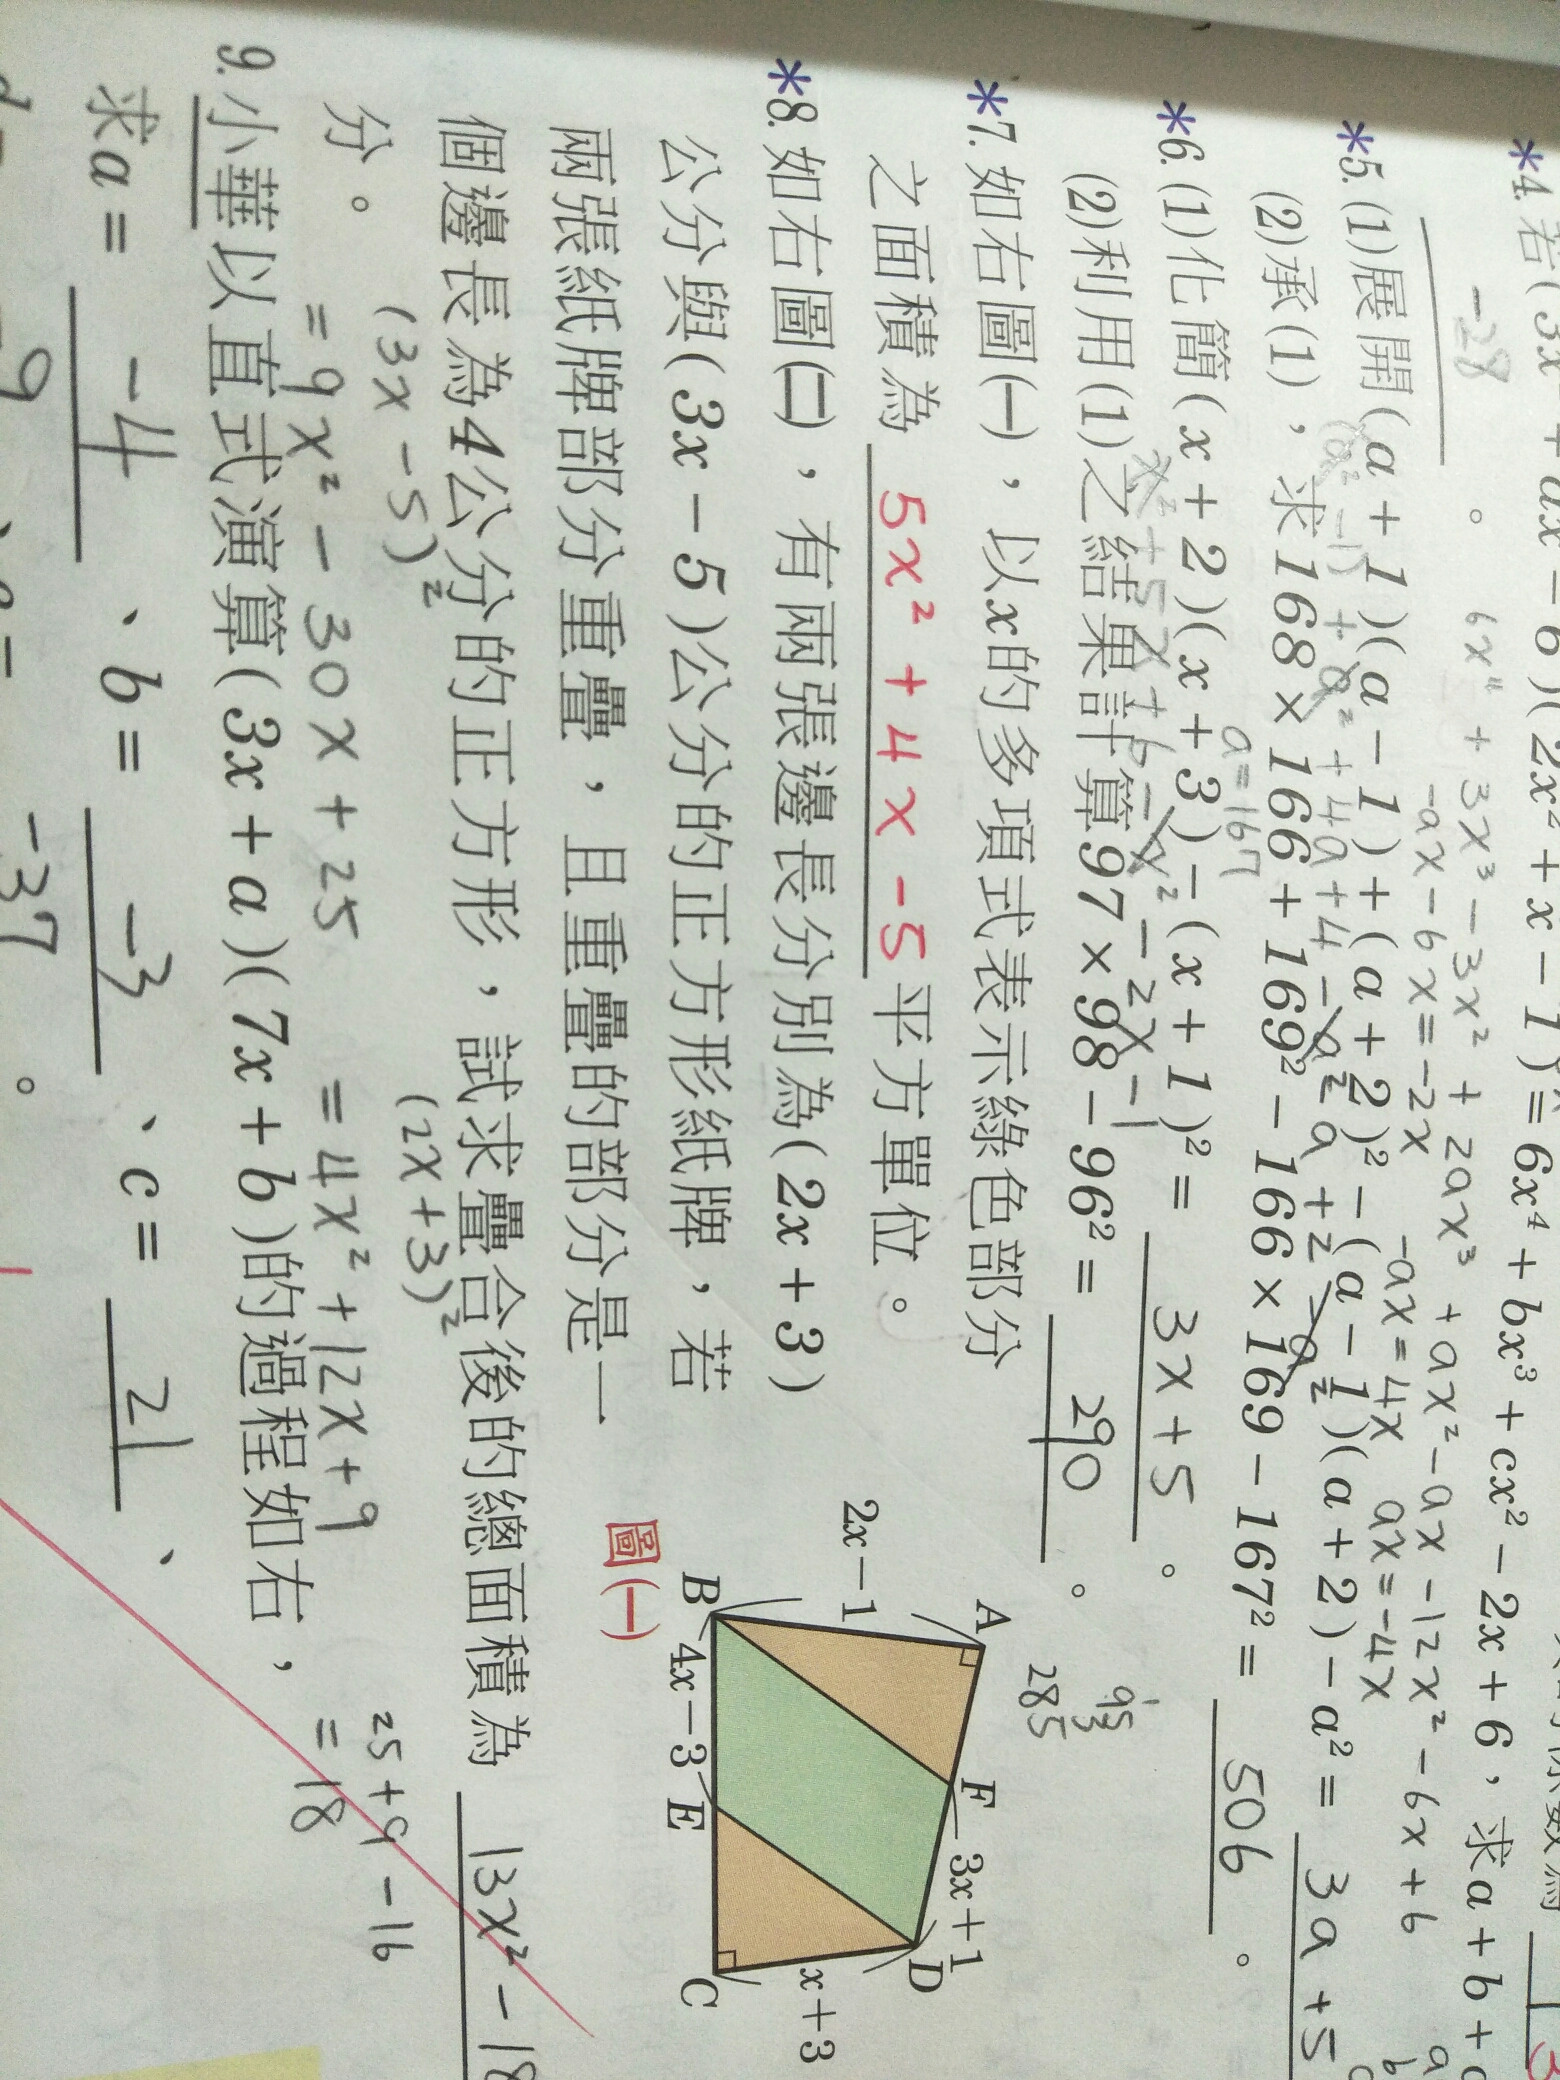 *4. 若(3x²+ax-6)(2x²+x-1)=6x⁴+bx³+cx²-2x+6，求a+b+c
-28 。
6x⁴+3x³-3x²+2ax³+ax²-ax-12x²-6x+6
-ax-6x=-2x
-ax=4x
ax=-4x
*5. (1)展開(a+1)(a-1)+(a+2)²-(a-1)(a+2)-a²= 3a+5
(a²-1)+a²+4a+4-a²-a+2-a²
(2)承(1)，求168×166+169²-166×169-167²= 506 。
a=167
*6. (1)化簡(x+2)(x+3)-(x+1)²= 3x+5 。
x²+5x+6-x²-2x-1
(2)利用(1)之結果計算97×98-96²= 290 。
95
3
285
*7. 如右圖(一)，以x的多項式表示綠色部分
之面積為 5x²+4x-5 平方單位。
*8. 如右圖(二)，有兩張邊長分別為(2x+3)
公分與(3x-5)公分的正方形紙牌，若
兩張紙牌部分重疊，且重疊的部分是一
個邊長為4公分的正方形，試求疊合後的總面積為 13x²-18
分。
(3x-5)²
=9x²-30x+25
(2x+3)²
=4x²+12x+9
25+9-16
=18
A
F
3x+1
D
2x-1
x+3
B
4x-3
E
C
圖(一)
9. 小華以直式演算(3x+a)(7x+b)的過程如右，
求a= -4 、b= -3 、c= 21 、
-9
-37 。